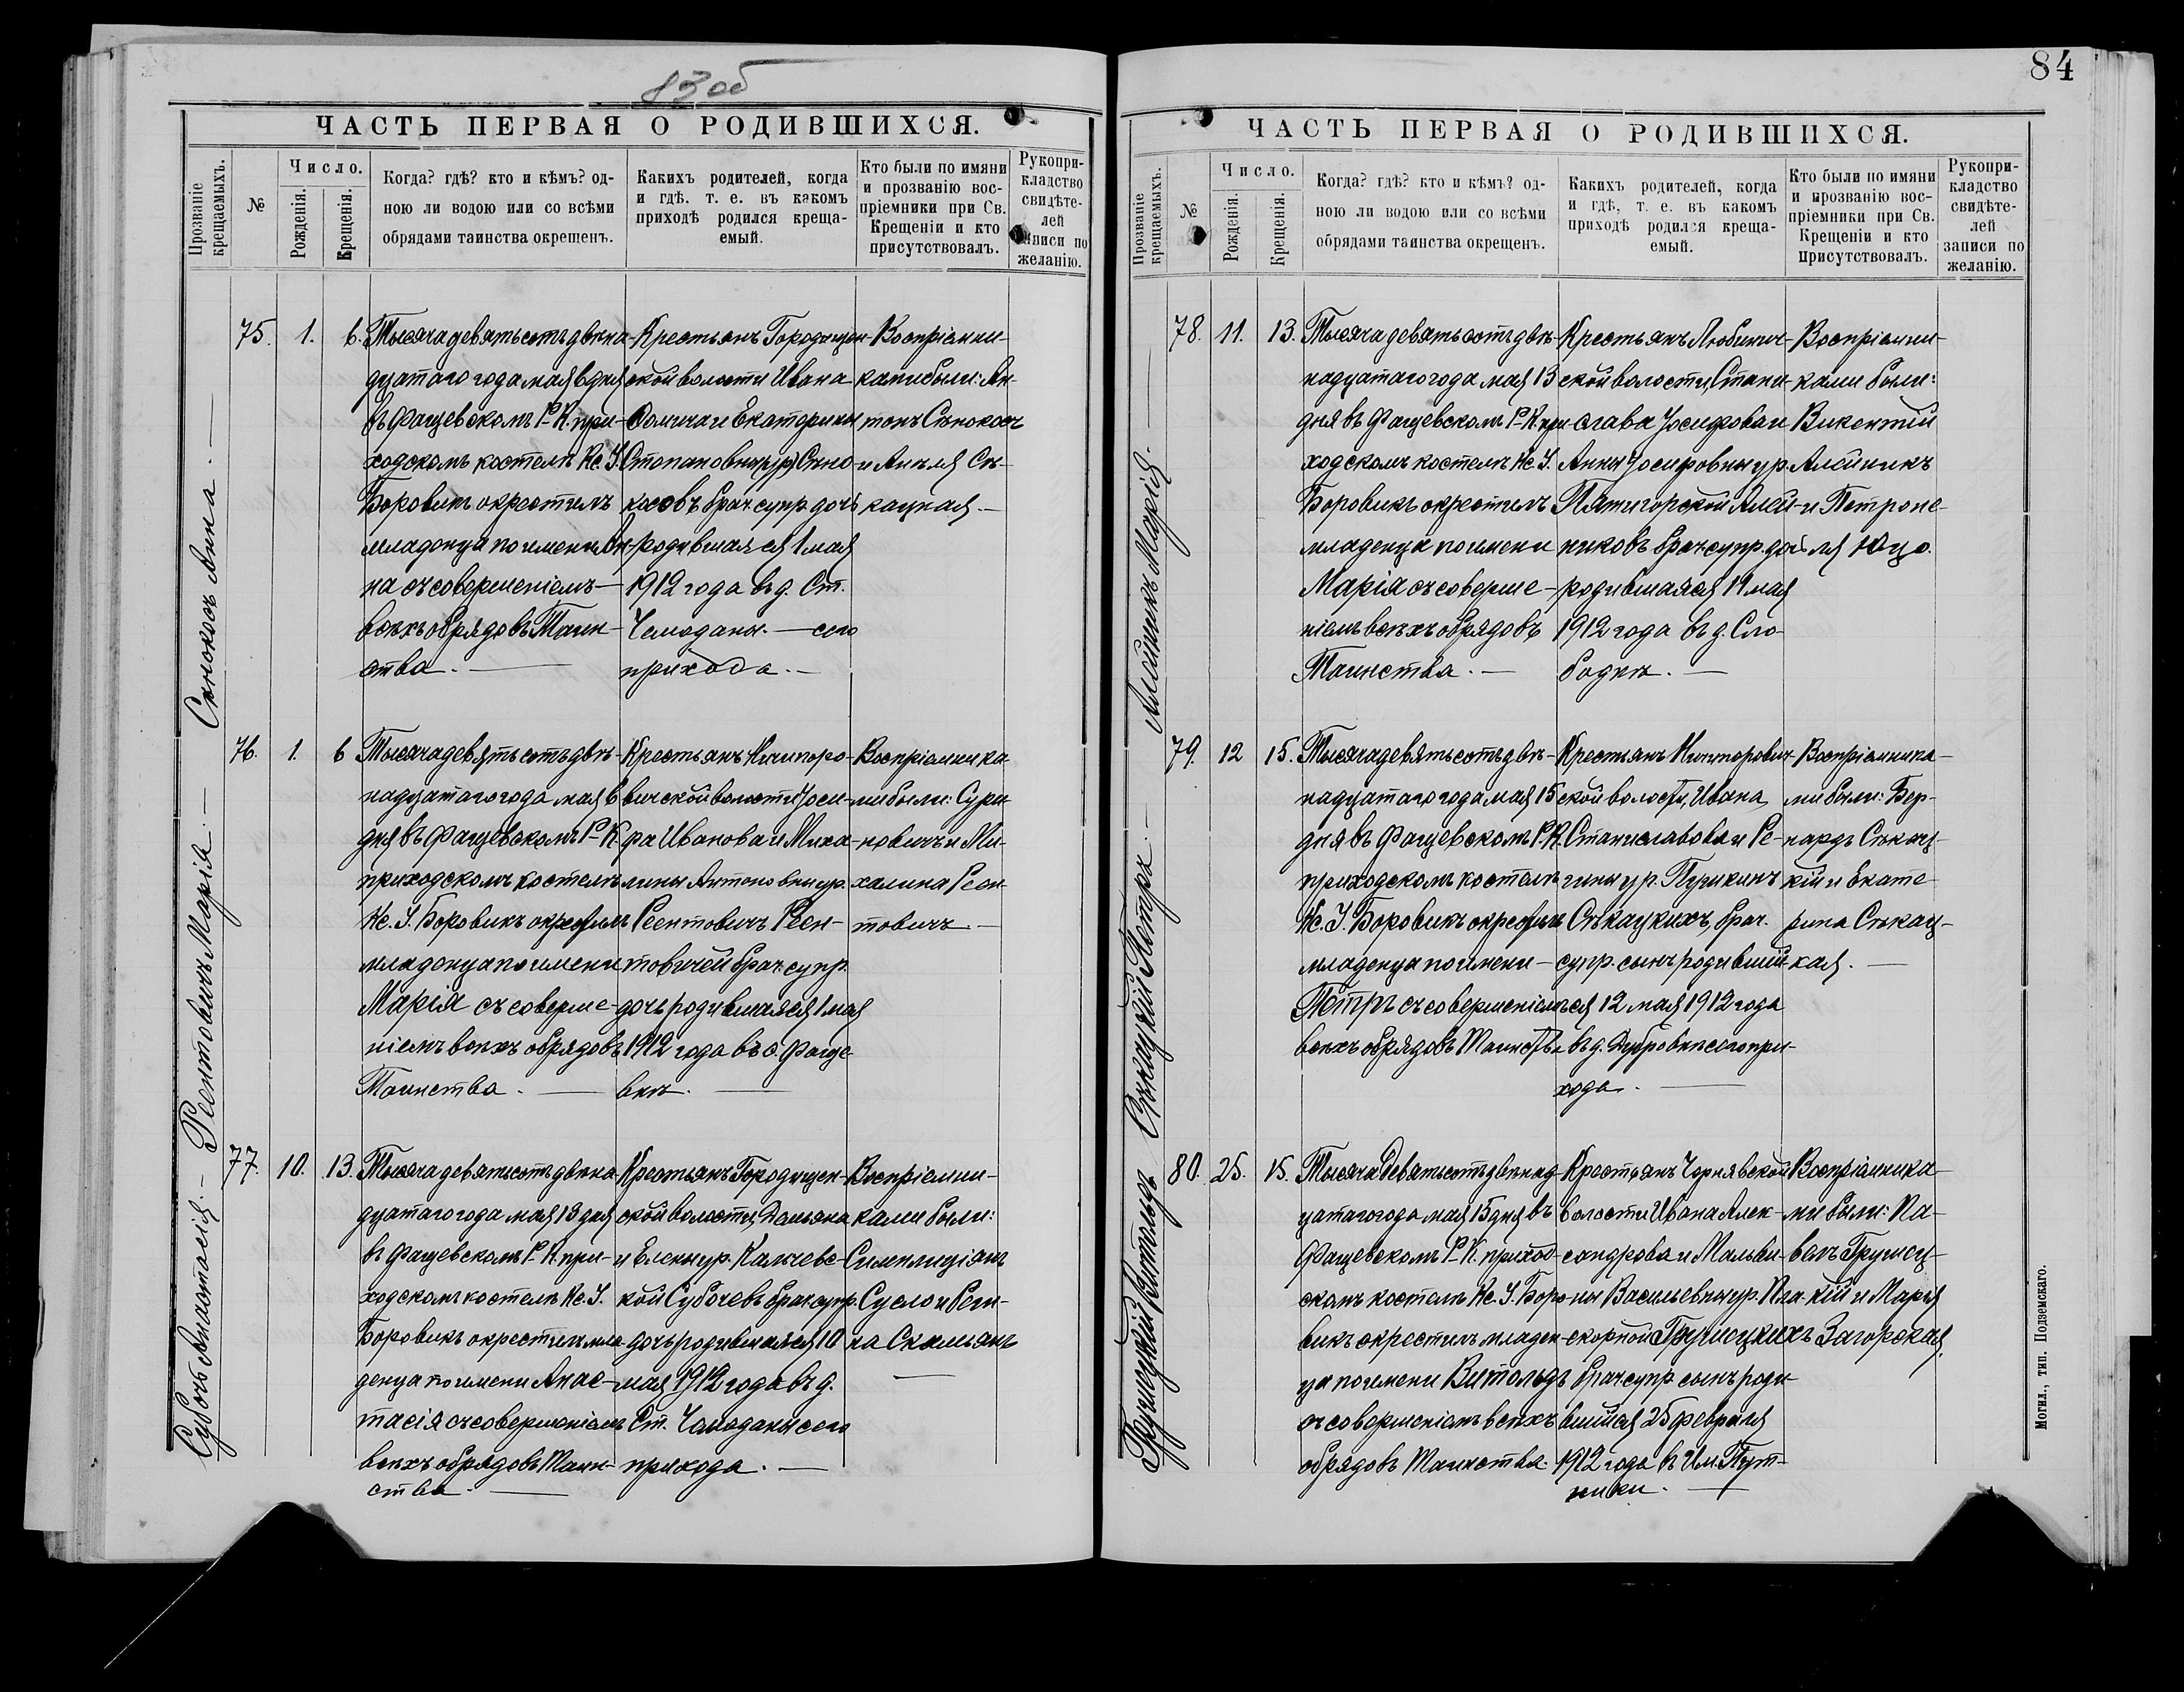 83 об
ЧАСТЬ ПЕРВАЯ О РОДИВШИХСЯ.
Прозваніе крещаемыхъ.
№
Число.
Рожденія.
Крещенія.
Когда? гдѣ? кто и кѣмъ? од-
ною ли водою или со всѣми
обрядами таинства окрещенъ.
Какихъ родителей, когда
и гдѣ, т. е. въ какомъ
приходѣ родился креща-
емый.
Кто были по имяни
и прозванію вос-
пріемники при Св.
Крещеніи и кто
присутствовалъ.
Рукопри-
кладство
свидѣте-
лей
записи по
желанію.
Сѣнокосъ Анна.
75.
1.
6.
Тысяча девятьсотъ двѣна-
дцатаго года мая 6 дня
въ Фащевскомъ Р-К. при-
ходскомъ костелѣ Кс. І.
Боровикъ окрестилъ
младенца по имени Ан-
на съ совершеніемъ
всѣхъ обрядовъ Таин-
ства.
Крестьянъ Городищен-
ской волости Ивана
Фомича и Екатерины
Степановны ур. Сѣно-
косовъ брач. супр. дочь
родившаяся 1 мая
1912 года въ д. Ст.
Чемоданы сего
прихода.
Воспріемни-
ками были: Ан-
тонъ Сѣнокосъ
и Анеля Сѣ-
кацкая.
Реентовичъ Марія.
76.
1.
6
Тысяча девятьсотъ двѣ-
надцатаго года мая 6
дня въ Фащевскомъ Р-К.
приходскомъ костелѣ
Кс. І. Боровикъ окрестилъ
младенца по имени
Марія съ соверше-
ніемъ всѣхъ обрядовъ
Таинства.
Крестьянъ Ничипоро-
вичской волости Іоси-
фа Иванова и Миха-
лины Антоновны ур.
Реентовичъ Реен-
товичей брач. супр.
дочь родившаяся 1 мая
1912 года въ с. Фаще-
вкѣ.
Воспріемника-
ми были:
и Ми-
халина Реен-
товичъ
Субочъ Анастасія.
77.
10.
13.
Тысяча девятьсотъ двѣна-
дцатаго года мая 13 дня
въ Фащевскомъ Р-К. при-
ходскомъ костелѣ Кс. І.
Боровикъ окрестилъ мла-
денца по имени Анас-
тасія съ совершеніемъ
всѣхъ обрядовъ Таин-
ства.
Крестьянъ Городищен-
ской волости Демьяна
и Елены ур. Кальчевс-
кой Субочевъ брач. супр.
дочь родившаяся 10
мая 1912 года въ д.
Ст. Чемоданы сего
прихода.
Воспріемни-
ками были:
Симплиціанъ
Сусло и Реги-
на
84
ЧАСТЬ ПЕРВАЯ О РОДИВШИХСЯ.
Прозваніе крещаемыхъ.
№
Число.
Рожденія.
Крещенія.
Когда? гдѣ? кто и кѣмъ? од-
ною ли водою или со всѣми
обрядами таинства окрещенъ.
Какихъ родителей, когда
и гдѣ, т. е. въ какомъ
приходѣ родился креща-
емый.
Кто были по имяни
и прозванію вос-
пріемники при Св.
Крещеніи и кто
присутствовалъ.
Рукопри-
кладство
свидѣте-
лей
записи по
желанію.
Алейникъ Марія.
78.
11.
13.
Тысяча девятьсотъ двѣ-
надцатаго года мая 13
дня въ Фащевскомъ Р-К. при-
ходскомъ костелѣ Кс. І.
Боровикъ окрестилъ
младенца по имени
Марія съ соверше-
ніемъ всѣхъ обрядовъ
Таинства.
Крестьянъ Любинич-
ской волости, Стани-
слава Іосифова и
Анны Іосифовны ур.
Пятигорской Алей-
никовъ брач. супр. дочь
родившаяся 11 мая
1912 года въ д. Сло-
бодкѣ.
Воспріемни-
ками были:
Викентій
Алейникъ
и Петроне-
ля Юцо.
Сѣкацкій Петръ.
79.
12
15.
Тысяча девятьсотъ двѣ-
надцатаго года мая 15
дня въ Фащевскомъ Р. К.
приходскомъ костелѣ
Кс. І. Боровикъ окрестилъ
младенца по имени
Петръ съ совершеніемъ
всѣхъ обрядовъ Таинства
Крестьянъ Ничипорович-
ской волости, Ивана
Станиславова и Ре-
гины ур. Пушкинъ
Сѣкацкихъ, брач.
супр. сынъ родивший-
ся 12 мая 1912 года
въ д. Дубровкѣ сего при-
хода.
Воспріемника-
ми были: Бер-
нардъ Сѣкац-
кій и Екате-
рина Сѣкац-
кая.
Грушецкій Витольдъ
80.
25.
15.
Тысяча девятьсотъ двѣнад-
цатаго года мая 15 дня въ
Фащевскомъ Р-К. приход-
скомъ костелѣ Кс. І. Боро-
викъ окрестилъ младен-
ца по имени Витольдъ
съ совершеніемъ всѣхъ
обрядовъ Таинства.
Крестьянъ Чернявской
волости Ивана Алек-
сандрова и Мальви-
ны Васильевны ур. Пла-
скорной Грушецкихъ
брач. супр. сынъ роди-
вшійся 25 февраля
1912 года въ Им. Пут-
ники.
Воспріемника-
ми были: Па-
велъ Грушец-
кій и Марія
Загорская.
Могил., тип. Подземскаго.